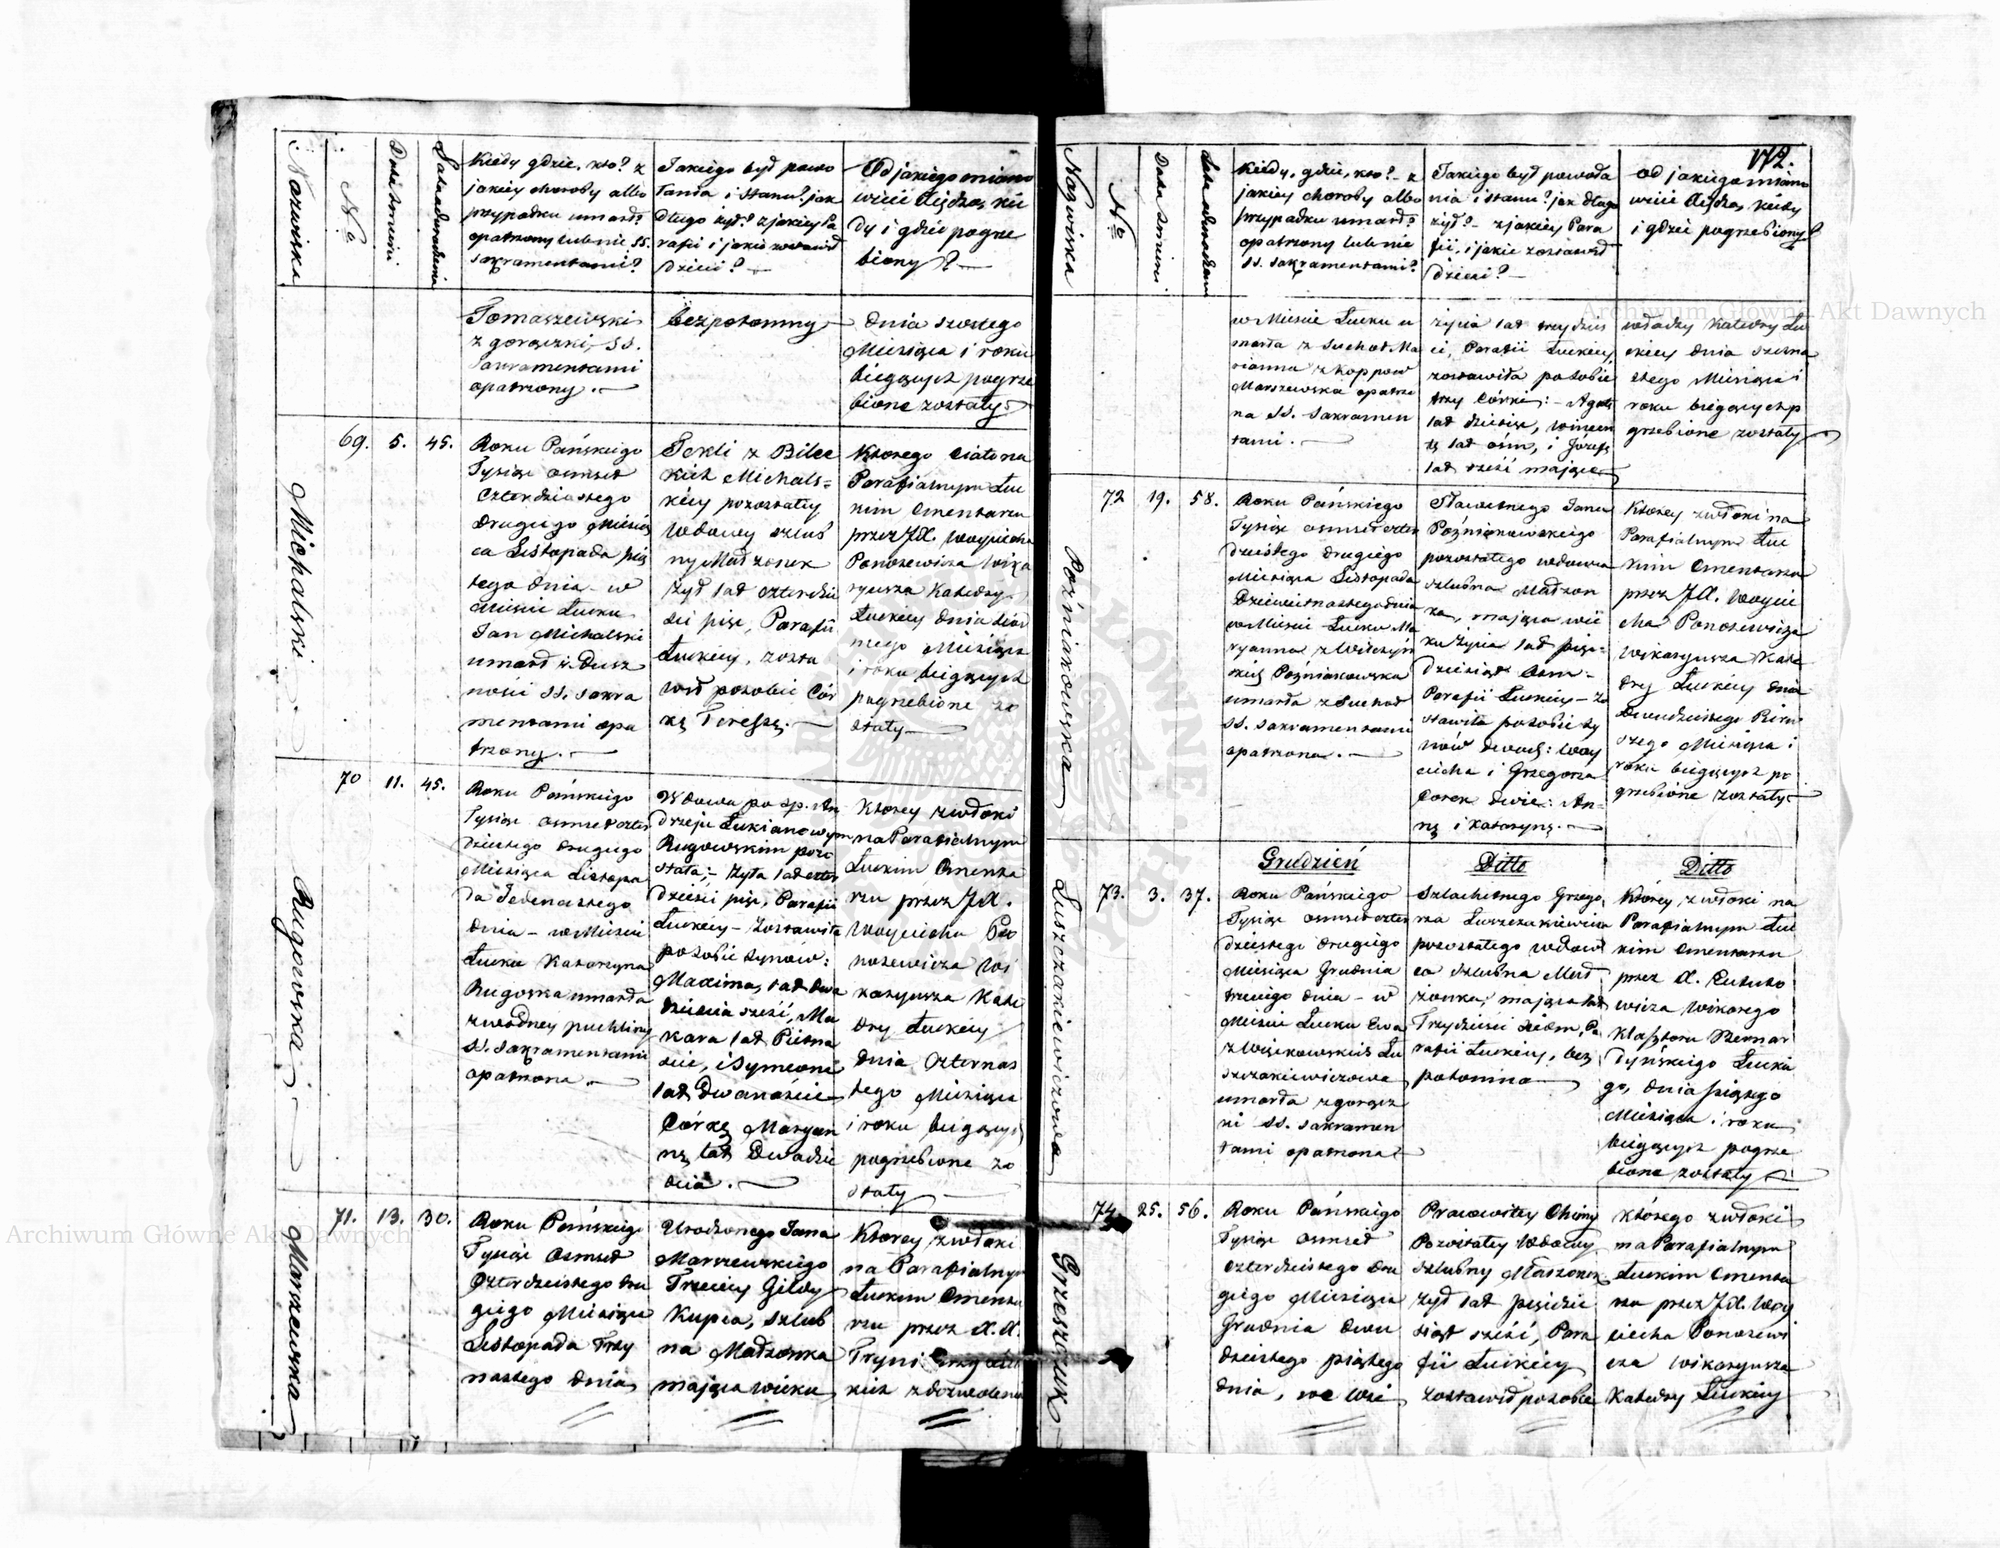 Nazwiska
No
Data śmierci
Lata od urodzenia
Kiedy gdzie, kto? z
jakiey choroby albo
przypadku umarł?
opatrzony lub nie SS.
sakramentami?
Jakiego był powo
łania i stanu? jak
długo żył? z jakiey Pa
rafii i jakie zostawił
dzieci? —
Od jakiego miano
wicie Xiędza, kie
dy i gdzie pogrze
biony? —
Tomaszewski
z gorączki, SS.
Sakramentami
opatrzony. —
bezpotomny —
dnia szostego
Miesiąca i roku
bieżących pogrze
bione zostały
Michalski
69. 5. 45.
Roku Pańskiego
Tysiąc osmset
czterdziestego
drugiego Miesią
ca Listopada pią
tego dnia w
Mieście Łucku
Jan Michalski
umarł z Dusz
ności SS. sakra
mentami opa
trzony. —
Tekli z Bilec
kich Michals=
kiey pozostałey
wdowy szlub
ny Małżonek
żył lat czterdzie
ści pięć, Parafii
Łuckiey, zosta
wił posobie Cór
kę Teressę. —
Ktorego ciało na
Parafialnym Łuc
kim Cmentarzu
przez JX. Woyciecha
Ponosewicza Wika
ryusza Katedry
Łuckiey dnia siod
mego Miesiąca
i roku bieżących
pogrzebione zo
stały —
Rugowska
70 11. 45.
Roku Pańskiego
Tysiąc osmset czter
dziestego drugiego
Miesiąca Listopa
da Jedenastego
dnia — w Mieście
Łucku Katarzyna
Rugoska umarła
z wodney puchliny
SS. sakramentami
opatrzona. —
Wdowa po sp. An
drzeju Łukianowym
Rugowskim pozo
stała; — żyła lat czter
dzieści pięć, Parafii
Łuckiey — Zostawiła
posobie synów:
Maxima, lat dwa
dzieścia sześć, Ma
kara lat Pietna
ście, i Symeona
lat Dwanaście
Córkę Maryan
nę lat Dwadzie
ścia. —
Ktorey zwłoki
na Parafialnym
Łuckim Cmenta
rzu przez JX.
Woyciecha Po
nosewicza Wi
karyusza Kate
dry Łuckiey
dnia Czternas
tego Miesiąca
i roku bieżących
pogrzebione zo
stały
Marszewska
71. 13. 30.
Roku Pańskiego
Tysiąc Osmset
Czterdziestego dru
giego Miesiąca
Listopada Trzy
nastego dnia
Urodzonego Jana
Marszewskiego
Trzeciey Gildy
Kupca, szlub
na Małżonka
mająca wieku
Ktorey zwłoki
na Parafialnym
Łuckim Cmenta
rzu przez X.X.
kich z dozwolenia
172.
Nazwiska
No
Data śmierci
Lata od urodzenia
Kiedy, gdzie, kto? z
jakiey choroby albo
przypadku umarł?
opatrzony lub nie
SS. sakramentami?
Jakiego był powoła
nia i stanu? jak długo
żył? — z jakiey Para
fii, i jakie zostawił
dzieci? —
Od jakiego miano
wicie Xiędza, kiedy
i gdzie pogrzebiony?
w Mieście Łucku u
marła z Suchot Ma
rianna z Koppow
Marszewska opatrzo
na SS. Sakramen
tami. —
życia lat trzydzieś
ci, Parafii Łuckiey,
zostawiła posobie
trzy Córki: — Agatę
lat dziesięć, Wincen
tę lat ośm, i Józefę
lat sześć mające
władzy Katedry Łu
ckiey dnia szesna
stego Miesiąca i
roku bieżących po
grzebione zostały
Poźniakowska
72 19. 58.
Roku Pańskiego
Tysiąc osmset czter
dziestego drugiego
Miesiąca Listopada
Dziewietnastego dnia
w Mieście Łucku Ma
ryanna z Wilczyń
skich Poźniakowska
umarła z Suchot
SS. Sakramentami
opatrzona. —
Sławetnego Jana
Poźniakowskiego
pozostałego wdowca
szlubna Małżon
ka, mająca wie
ku życia lat pięć=
dziesiąt osm —
Parafii Łuckiey — Zo
stawiła posobie Sy
nów dwóch: Woy
ciecha i Grzegorza
Corek dwie: An=
nę i Katarzynę. —
Ktorey zwłoki na
Parafialnym Łuc
kim Cmentarzu
przez JX. Woycie
cha Ponosewicza
Wikaryusza Kate
dry Łuckiey dnia
Dwudziestego Pierw
szego Miesiąca i
roku bieżących po
grzebione zostały
Grudzień
Ditto
Ditto
Łuszczakiewiczowa
73. 3. 37.
Roku Pańskiego
Tysiąc osmset czter
dziestego drugiego
Miesiąca Grudnia
trzeciego dnia — w
Mieście Łucku Ewa
z Więckowskich Łu
szczakiewiczowa
umarła z gorącz
ki SS. sakramen
tami opatrzona
Szlachetnego Grzego
rza Łuszczakiewicza
pozostałego wdow
ca szlubna Mał
żonka, mająca lat
Trzydzieści siedm, Pa
rafii Łuckiey, bez
potomna —
Ktorey, zwłoki na
Parafialnym Łuc
kim Cmentarzu
przez X.
wicza Wikarego
Klasztoru Bernar
dyńskiego Łuckie
go, dnia piątego
Miesiąca i roku
bieżących pogrze
bione zostały
Grzeszczuk
74. 25. 56.
Roku Pańskiego
Tysiąc osmset
czterdziestego Dru
giego Miesiąca
Grudnia dwu
dziestego piątego
dnia, we wsi
Pracowitey Chimy
Pozostałey Wdowy
szlubny Małżonek
żył lat pięćdzie
siąt sześć, Para
fii Łuckiey
zostawił posobie
którego zwłoki
na Parafialnym
Łuckim Cmenta
rzu przez JX. Woy
ciecha Ponosewi
cza Wikaryusza
Katedry Łuckiey
Archiwum Główne Akt Dawnych
Archiwum Główne Akt Dawnych